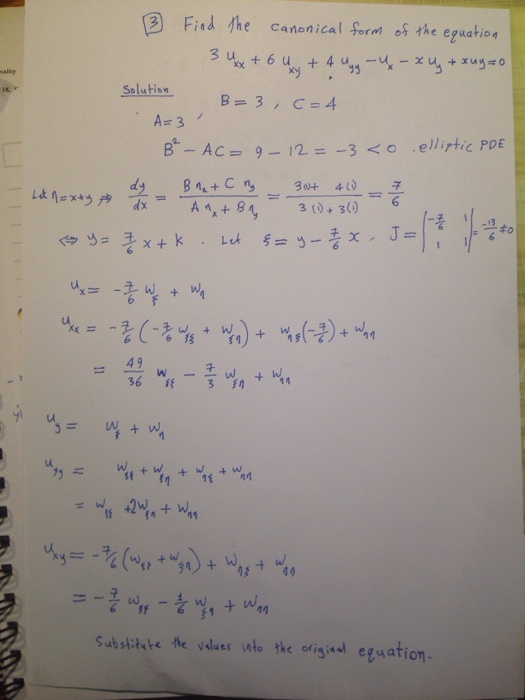 3 Find the canonical form of the equation
3 u_xx + 6 u_xy + 4 u_yy - u_x - x u_y + xuy = 0
Solution
A = 3 , B = 3 , C = 4
B² - AC = 9 - 12 = -3 < 0 . elliptic PDE
Let η = x+y ⇒ dy/dx = (B η_x + C η_y)/(A η_x + B η_y) = (3(1)+ 4(1))/(3(1)+3(1)) = 7/6
⇔ y = 7/6 x + k . Let ξ = y - 7/6 x , J = |-7/6 1 1 1| = -13/6 ≠ 0
u_x = -7/6 w_ξ + w_η
u_xx = -7/6 (-7/6 w_ξξ + w_ξη) + w_ηξ(-7/6) + w_ηη
= 49/36 w_ξξ - 7/3 w_ξη + w_ηη
u_y = w_ξ + w_η
u_yy = w_ξξ + w_ξη + w_ηξ + w_ηη
= w_ξξ + 2w_ξη + w_ηη
u_xy = -7/6 (w_ξξ + w_ξη) + w_ηξ + w_ηη
= -7/6 w_ξξ - 1/6 w_ξη + w_ηη
Substitute the values into the original equation.